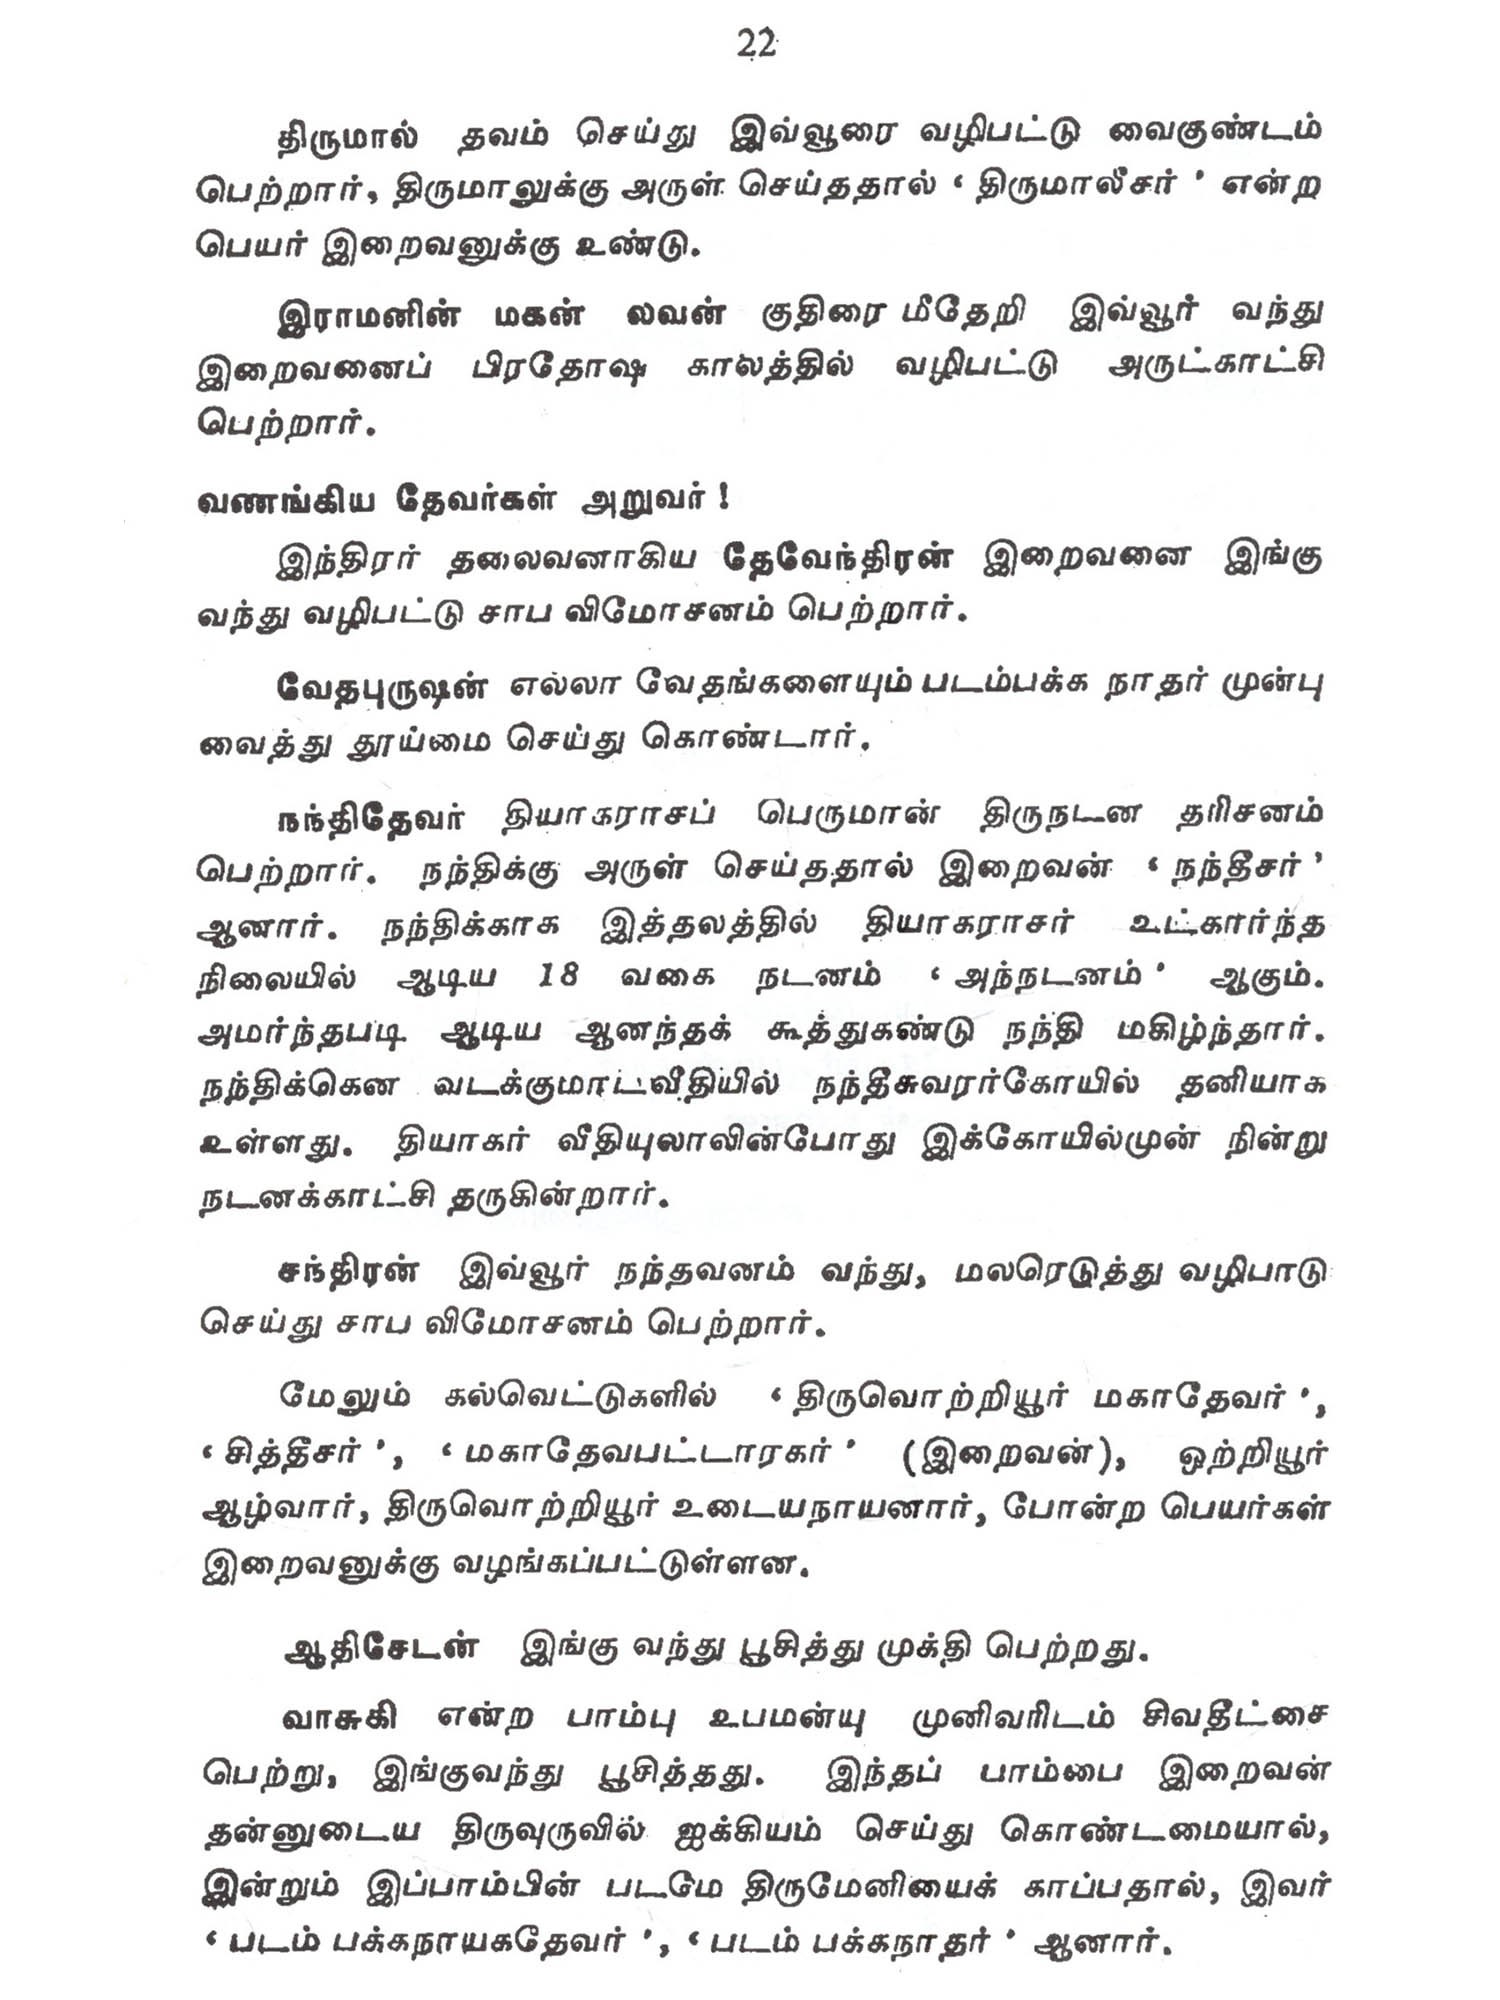 22
திருமால் தவம் செய்து இவ்வூரை வழிபட்டு வைகுண்டம்
பெற்றார், திருமாலுக்கு அருள் செய்ததால் ‘ திருமாலீசர் ’ என்ற
பெயர் இறைவனுக்கு உண்டு.
இராமனின் மகன் லவன் குதிரை மீதேறி இவ்வூர் வந்து
இறைவனைப் பிரதோஷ காலத்தில் வழிபட்டு அருட்காட்சி
பெற்றார்.
வணங்கிய தேவர்கள் அறுவர் !
இந்திரர் தலைவனாகிய தேவேந்திரன் இறைவனை இங்கு
வந்து வழிபட்டு சாப விமோசனம் பெற்றார்.
வேதபுருஷன் எல்லா வேதங்களையும் படம்பக்க நாதர் முன்பு
வைத்து தூய்மை செய்து கொண்டார்.
நந்திதேவர் தியாகராசப் பெருமான் திருநடன தரிசனம்
பெற்றார். நந்திக்கு அருள் செய்ததால் இறைவன் ‘ நந்தீசர் ’
ஆனார். நந்திக்காக இத்தலத்தில் தியாகராசர் உட்கார்ந்த
நிலையில் ஆடிய 18 வகை நடனம் ‘ அந்நடனம் ’ ஆகும்.
அமர்ந்தபடி ஆடிய ஆனந்தக் கூத்துகண்டு நந்தி மகிழ்ந்தார்.
நந்திக்கென வடக்குமாடவீதியில் நந்தீசுவரர்கோயில் தனியாக
உள்ளது. தியாகர் வீதியுலாவின்போது இக்கோயில்முன் நின்று
நடனக்காட்சி தருகின்றார்.
சந்திரன் இவ்வூர் நந்தவனம் வந்து, மலரெடுத்து வழிபாடு
செய்து சாப விமோசனம் பெற்றார்.
மேலும் கல்வெட்டுகளில் ‘ திருவொற்றியூர் மகாதேவர் ’,
‘ சித்தீசர் ’, ‘ மகாதேவபட்டாரகர் ’ (இறைவன்), ஒற்றியூர்
ஆழ்வார், திருவொற்றியூர் உடையநாயனார், போன்ற பெயர்கள்
இறைவனுக்கு வழங்கப்பட்டுள்ளன.
ஆதிசேடன் இங்கு வந்து பூசித்து முக்தி பெற்றது.
வாசுகி என்ற பாம்பு உபமன்யு முனிவரிடம் சிவதீட்சை
பெற்று, இங்குவந்து பூசித்தது. இந்தப் பாம்பை இறைவன்
தன்னுடைய திருவுருவில் ஐக்கியம் செய்து கொண்டமையால்,
இன்றும் இப்பாம்பின் படமே திருமேனியைக் காப்பதால், இவர்
‘ படம் பக்கநாயகதேவர் ’, ‘ படம் பக்கநாதர் ’ ஆனார்.